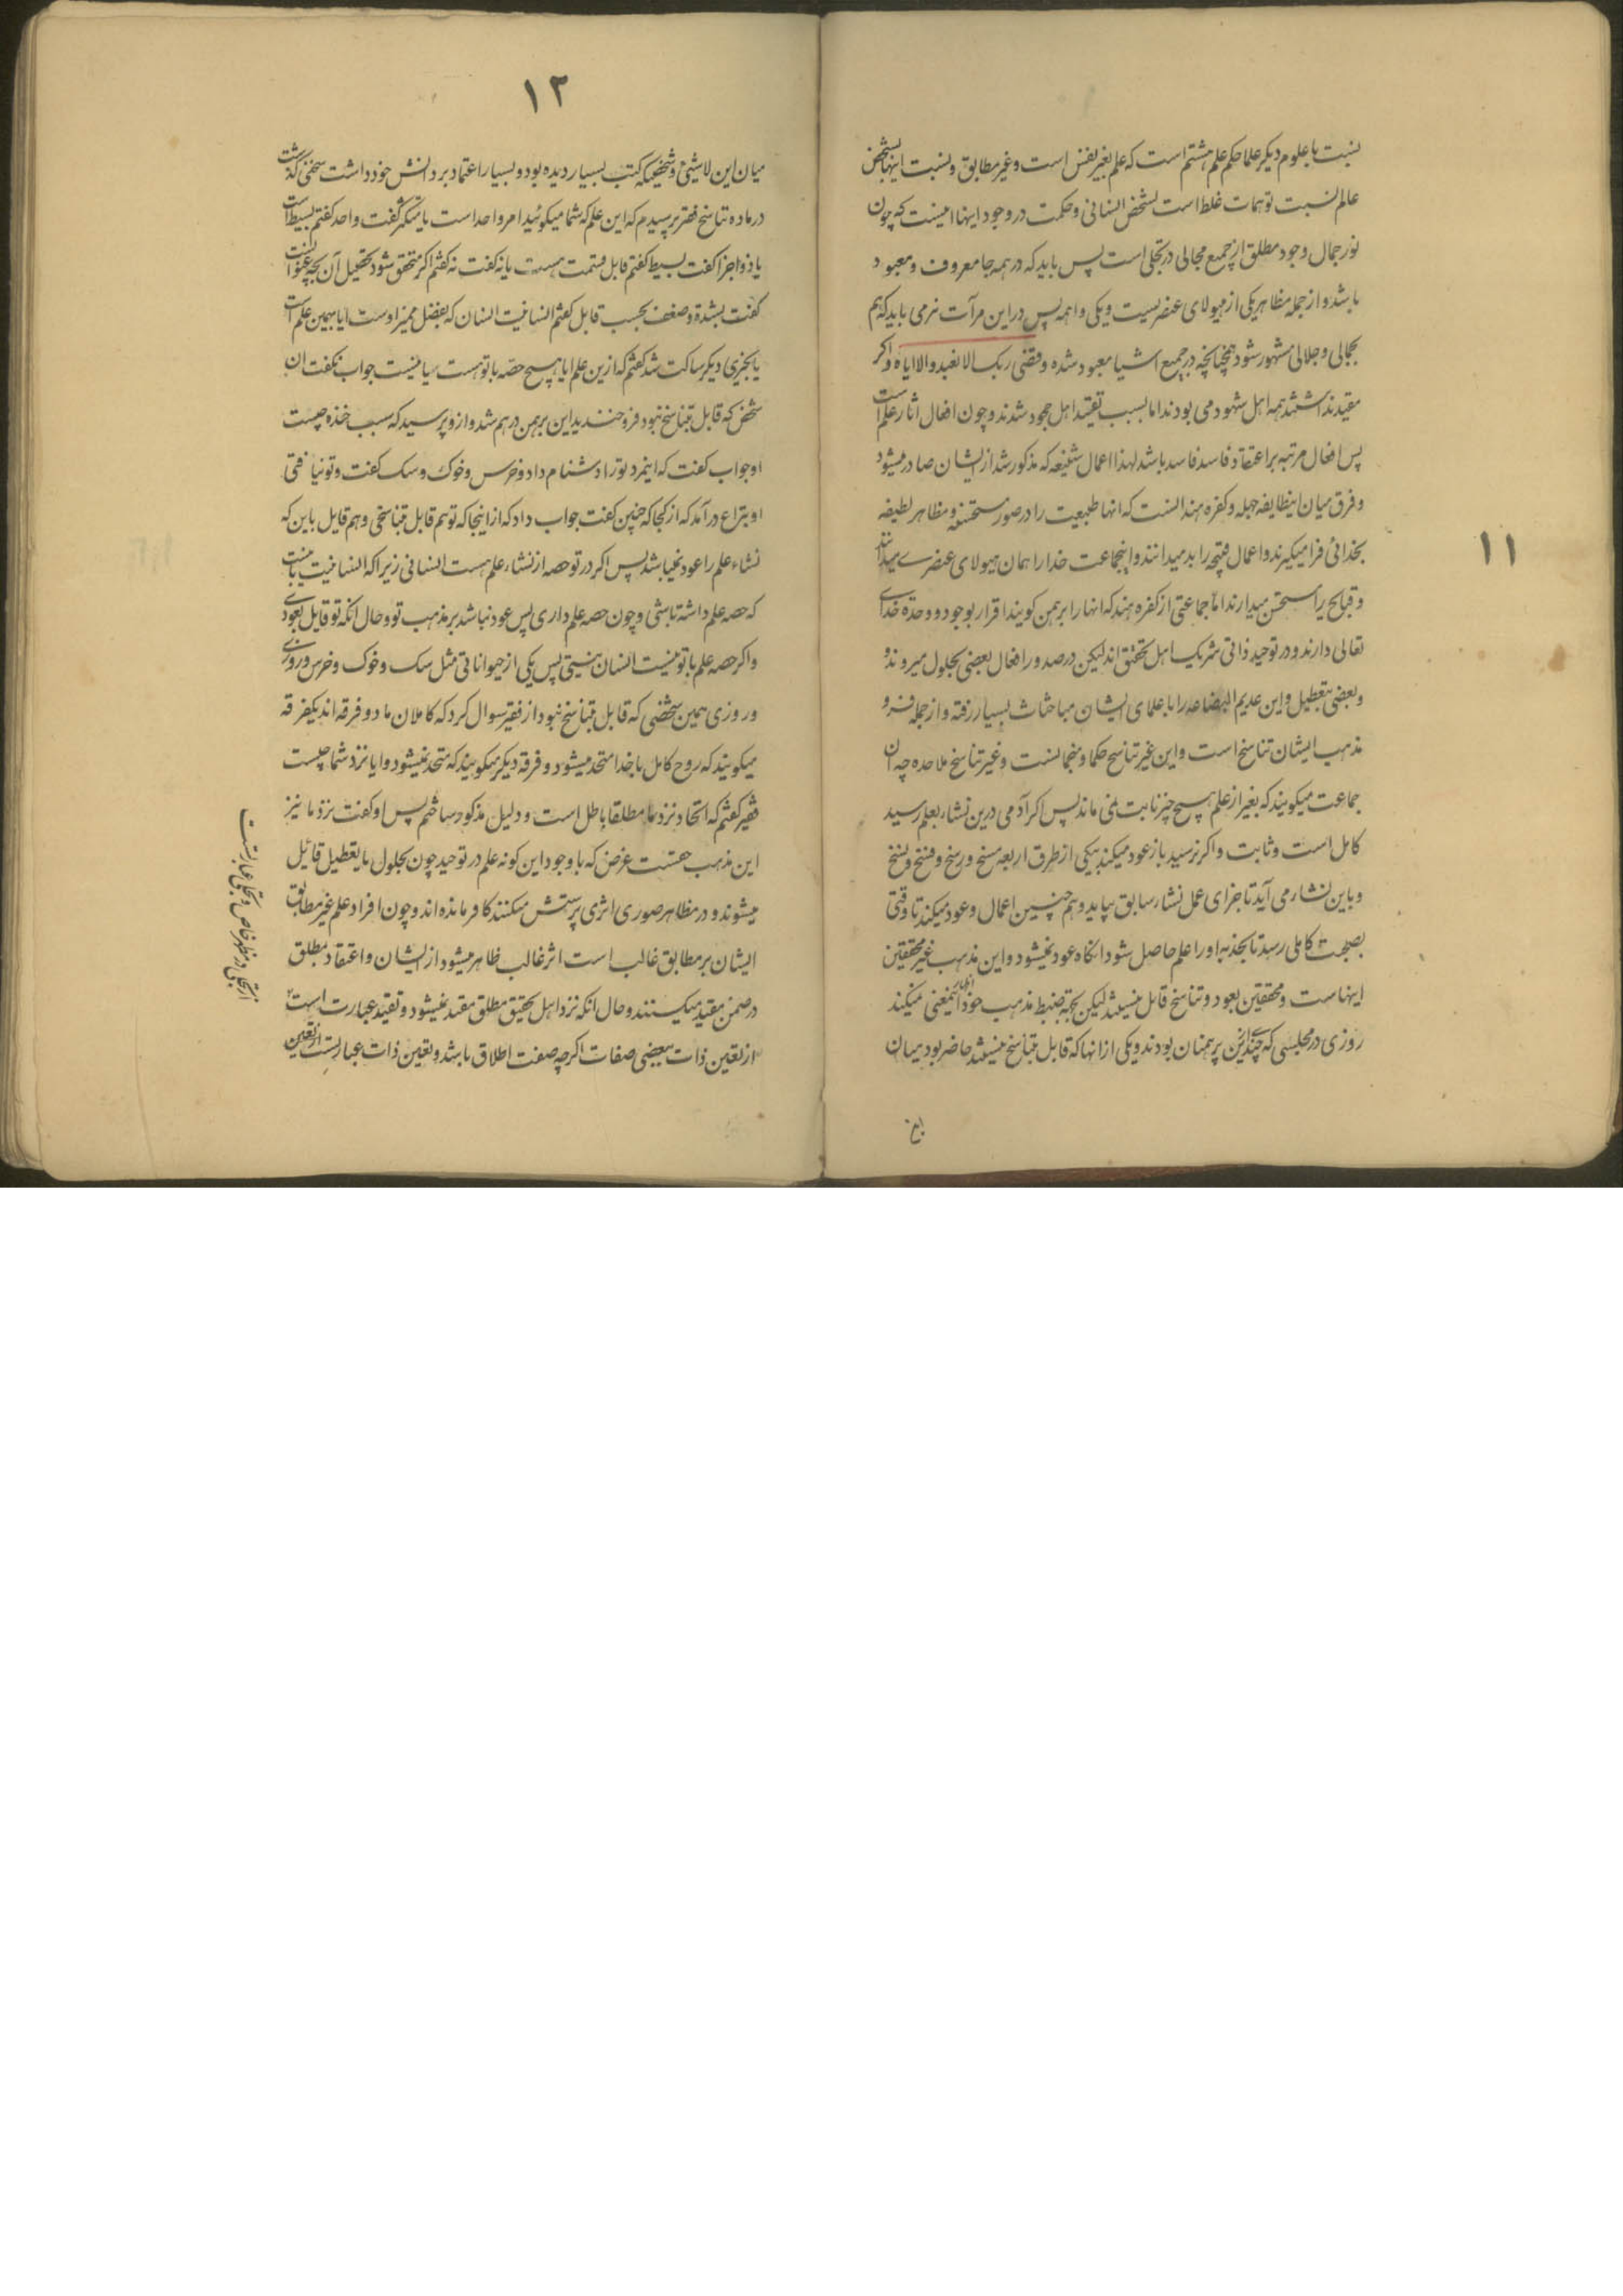 ۱۱
نسبت با علوم دیکر علما حکم علم هشتم است که علم بغیر نفس است و غیر مطابق و نسبت اینها بشخص
عالم نسبت توهمات غلط است بشخص انسانی و حکمت در وجود اینها اینست که چون
نور جمال وجود مطلق از جمیع مجالی در تجلی است پس باید که در همه جا معروف و معبود
باشد و از جمله مظاهر یکی از هیولای عنصریست و یکی واهمه پس در این مرآت نرمی باید که هم
بجمالی و جلالی مشهور شود همچنانچه در جمیع اشیا معبود شده وقضی ربک الا نعبدوالا ایاه و اکر
مقید نداشتند همه اهل شهود می بودند اما بسبب تقیید اهل جحود شدند و چون افعال اثار علم است
پس افعال مرتبه بر اعتقاد فاسد فاسد باشد لهذا اعمال شنیعه که مذکور شد از ایشان صادر میشود
و فرق میان اینطایفه جهله و کفره هند انست که انها طبیعت را در صور مستحسنه و مظاهر لطیفه
بخدائی فرا میکیرند و اعمال قبیحه را بد میدانند و اینجماعت خدا را همان هیولای عنصری میدانند
و قبایح را مستحسن میدارند اما جماعتی از کفره هند که انها را برهمن کویند اقرار بوجود و وحدة خدای
تعالی دارند و در توحید ذاتی شریک اهل تحقق اند لیکن در صدور افعال بعضی بحلول میروند و
و بعضی بتعطیل و این عدیم البضاعه را با علمای ایشان مباحثات بسیار رفته و از جمله
مذهب ایشان تناسخ است و این غیر تناسخ حکما و منجمانست و غیر تناسخ ملاحده چه ان
جماعت میکویند که بغیر از علم هیچ چیز ثابت نمی ماند پس اکر آدمی درین نشاء بعلم رسید
کامل است و ثابت و اکر نرسید باز عود میکند بیکی از طرق اربعه مسخ و رسخ و فسخ و نسخ
و باین نشاء می آید تا جزای عمل نشاء سابق بیابد و هم چنین اعمال و عود میکند تا وقتی
بصحبت کاملی رسد تا بجذبه او را علم حاصل شود انکاه عود نمیشود و این مذهب غیر محققین
اینهاست و محققین بعود و تناسخ قایل نیستند لیکن بجهة ضبط مذهب خود اظهار اینمعنی نمیکنند
روزی در مجلسی که چندین برهمنان بودند و یکی از انها که قایل بتناسخ نیستند حاضر بود میان
۱۲
میان این لاشیئ و شخصیکه کتب بسیار دیده بود و بسیار اعتماد بر دانش خود داشت سخنی کذشت
در ماده تناسخ فقیر پرسیدم که این علم که شما میکوئید امر واحد است یا متکثر کفت واحد کفتم بسیط است
یا ذو اجزا کفت بسیط کفتم قابل قسمت هست یا نه کفت نه کفتم اکر متحقق شود تحصیل آن بچه عنوانست
کفت بشدة و ضعف بحسب قابل کفتم انسانیت انسان که بفضل ممیز اوست ایا بهمین علم است
یا بچیزی دیکر ساکت شد کفتم که ازین علم ایا هیچ حصه با تو هست یا نیست جواب نکفت ان
شخص که قایل بتناسخ نبود فرو خندید این برهمن درهم شد و ازو پرسید که سبب خنده چیست
او جواب کفت که اینمرد تو را دشنام داد و خرس و خوک و سک کفت و تو نیافتی
او بنزاع درآمد که از کجا که چنین کفت جواب داد که از اینجا که تو هم قایل بتناسخی و هم قایل باین که
نشاء علم را عود نمیباشد پس اکر در تو حصه از نشاء علم هست انسانی زیرا که انسانیت باینست
که حصه علم داشته باشی و چون حصه علم داری پس عود نباشد بر مذهب تو و حال انکه تو قایل بعودی
و اکر حصه علم با تو نیست انسان نیستی پس یکی از حیواناتی مثل سک و خوک و خرس و روزی
و روزی همین شخصی که قایل بتناسخ نبود از فقیر سوال کرد که کاملان ما دو فرقه اند یکفرقه
میکویند که روح کامل با خدا متحد میشود و فرقه دیکر میکویند که متحد نمیشود و ایا نزد شما چیست
فقیر کفتم که اتحاد نزد ما مطلقا باطل است و دلیل مذکور ساختم پس او کفت نزد ما نیز
این مذهب حقست غرض که با وجود این کونه علم در توحید چون بحلول یا بتعطیل قائیل
میشوند و در مظاهر صوری اثری پرستش میکنند کافر مانده اند و چون افراد علم غیر مطابق
ایشان بر مطابق غالب است اثر غالب ظاهر میشود از ایشان و اعتقاد مطلق
در ضمن مقید میکنند و حال انکه نزد اهل تحقیق مطلق مقید نمیشود و تقیید عبارت است
از تعین ذات ببعضی صفات اکرچه صفت اطلاق باشد و تعین ذات عبارتست از تعین
از تجلی در مظهر خاص و تجلی عبارتست